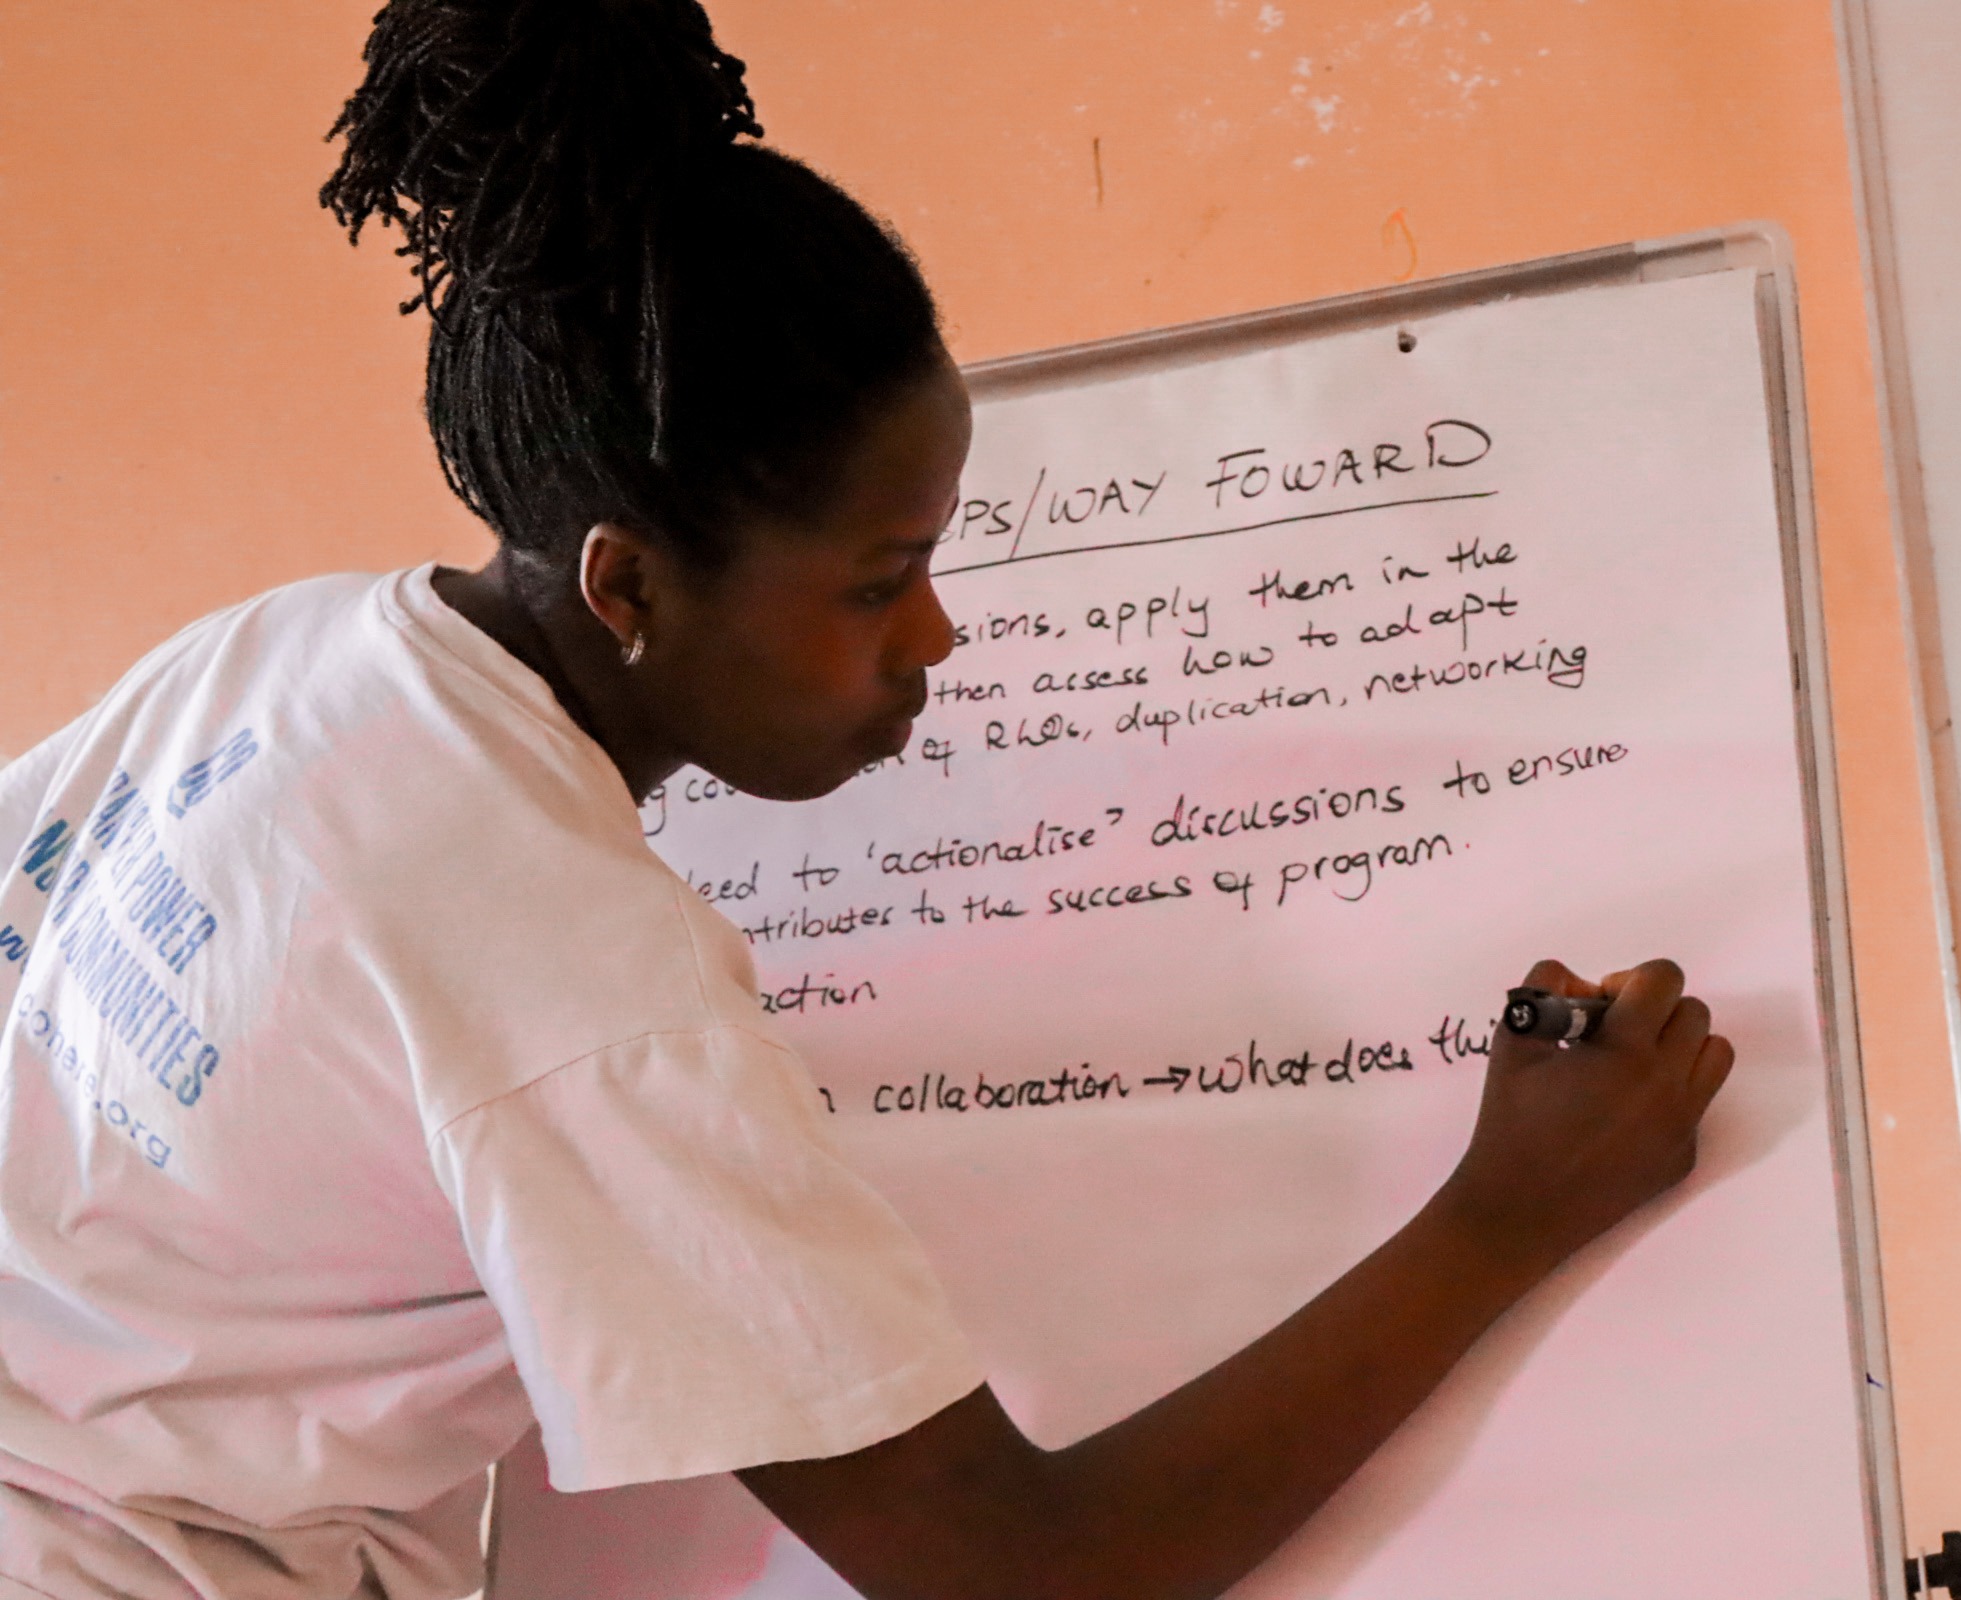 EPS/WAY FOWARD
sions, apply them in the
then assess how to adapt
of RLOs, duplication, networking
g cou
eed to 'actionalise' discussions to ensure
ntributes to the success of program.
action
n collaboration → what does thi
POWER
COMMUNITIES
.org